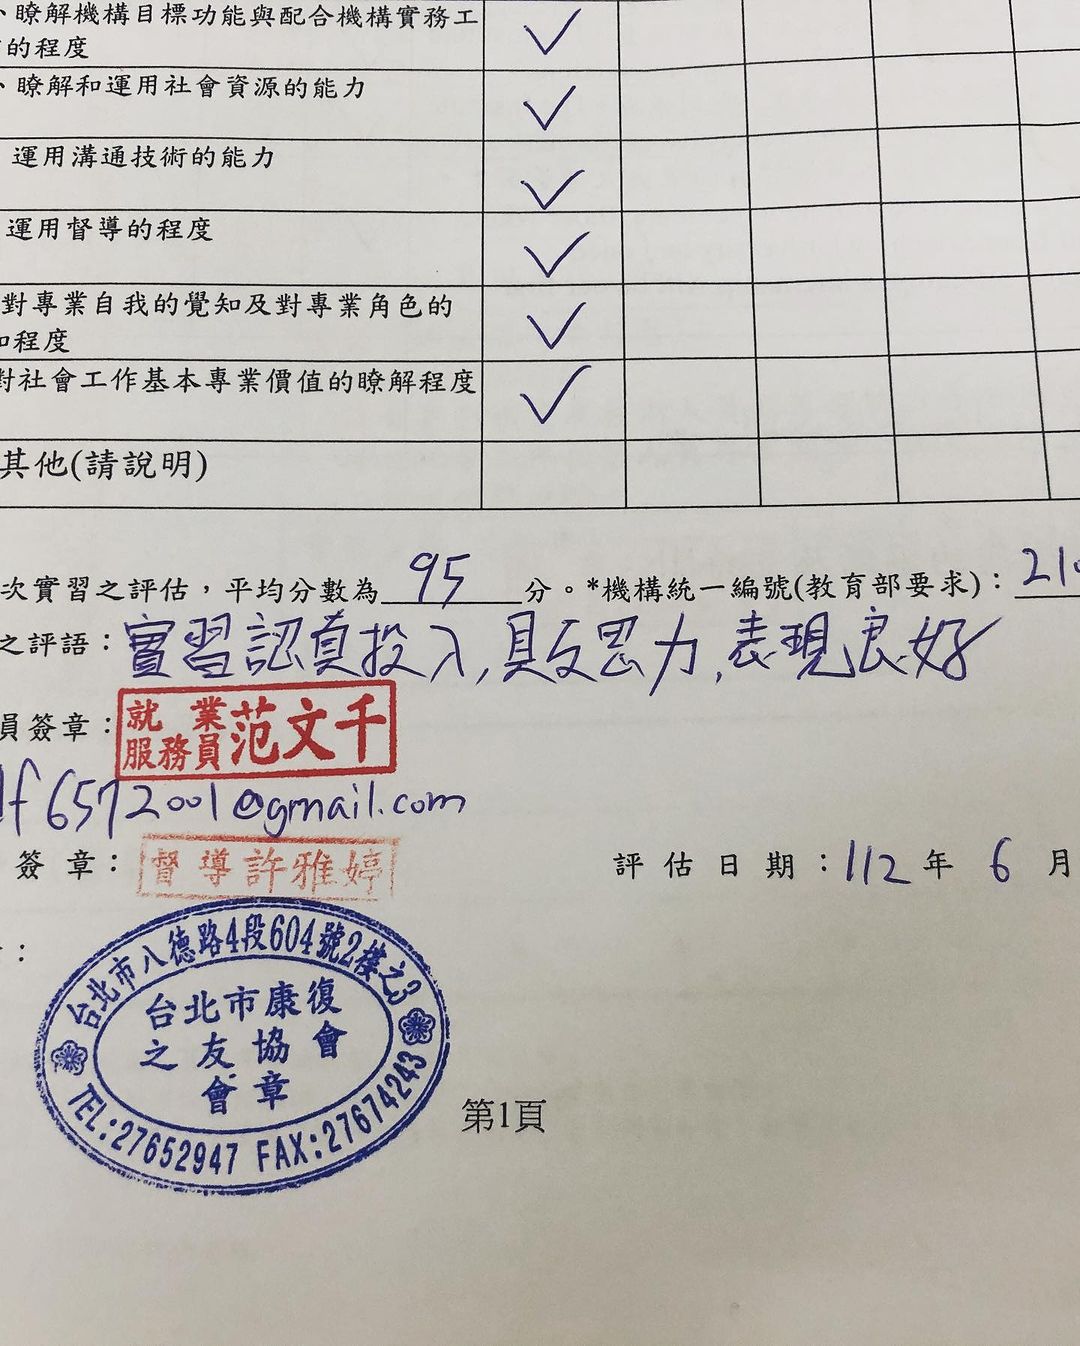 、瞭解機構目標功能與配合機構實務工
的程度
、瞭解和運用社會資源的能力
運用溝通技術的能力
運用督導的程度
對專業自我的覺知及對專業角色的
和程度
對社會工作基本專業價值的瞭解程度
其他(請說明)
次實習之評估，平均分數為 95 分。*機構統一編號(教育部要求)：210
之評語：實習認真投入,具反思力,表現良好
員簽章：
就業服務員 范文千
f6572001@gmail.com
簽章：督導許雅婷
評估日期：112年 6 月
：
台北市八德路4段604號2樓之3
台北市康復
之友協會
會章
TEL:27652947 FAX:27674243
第1頁